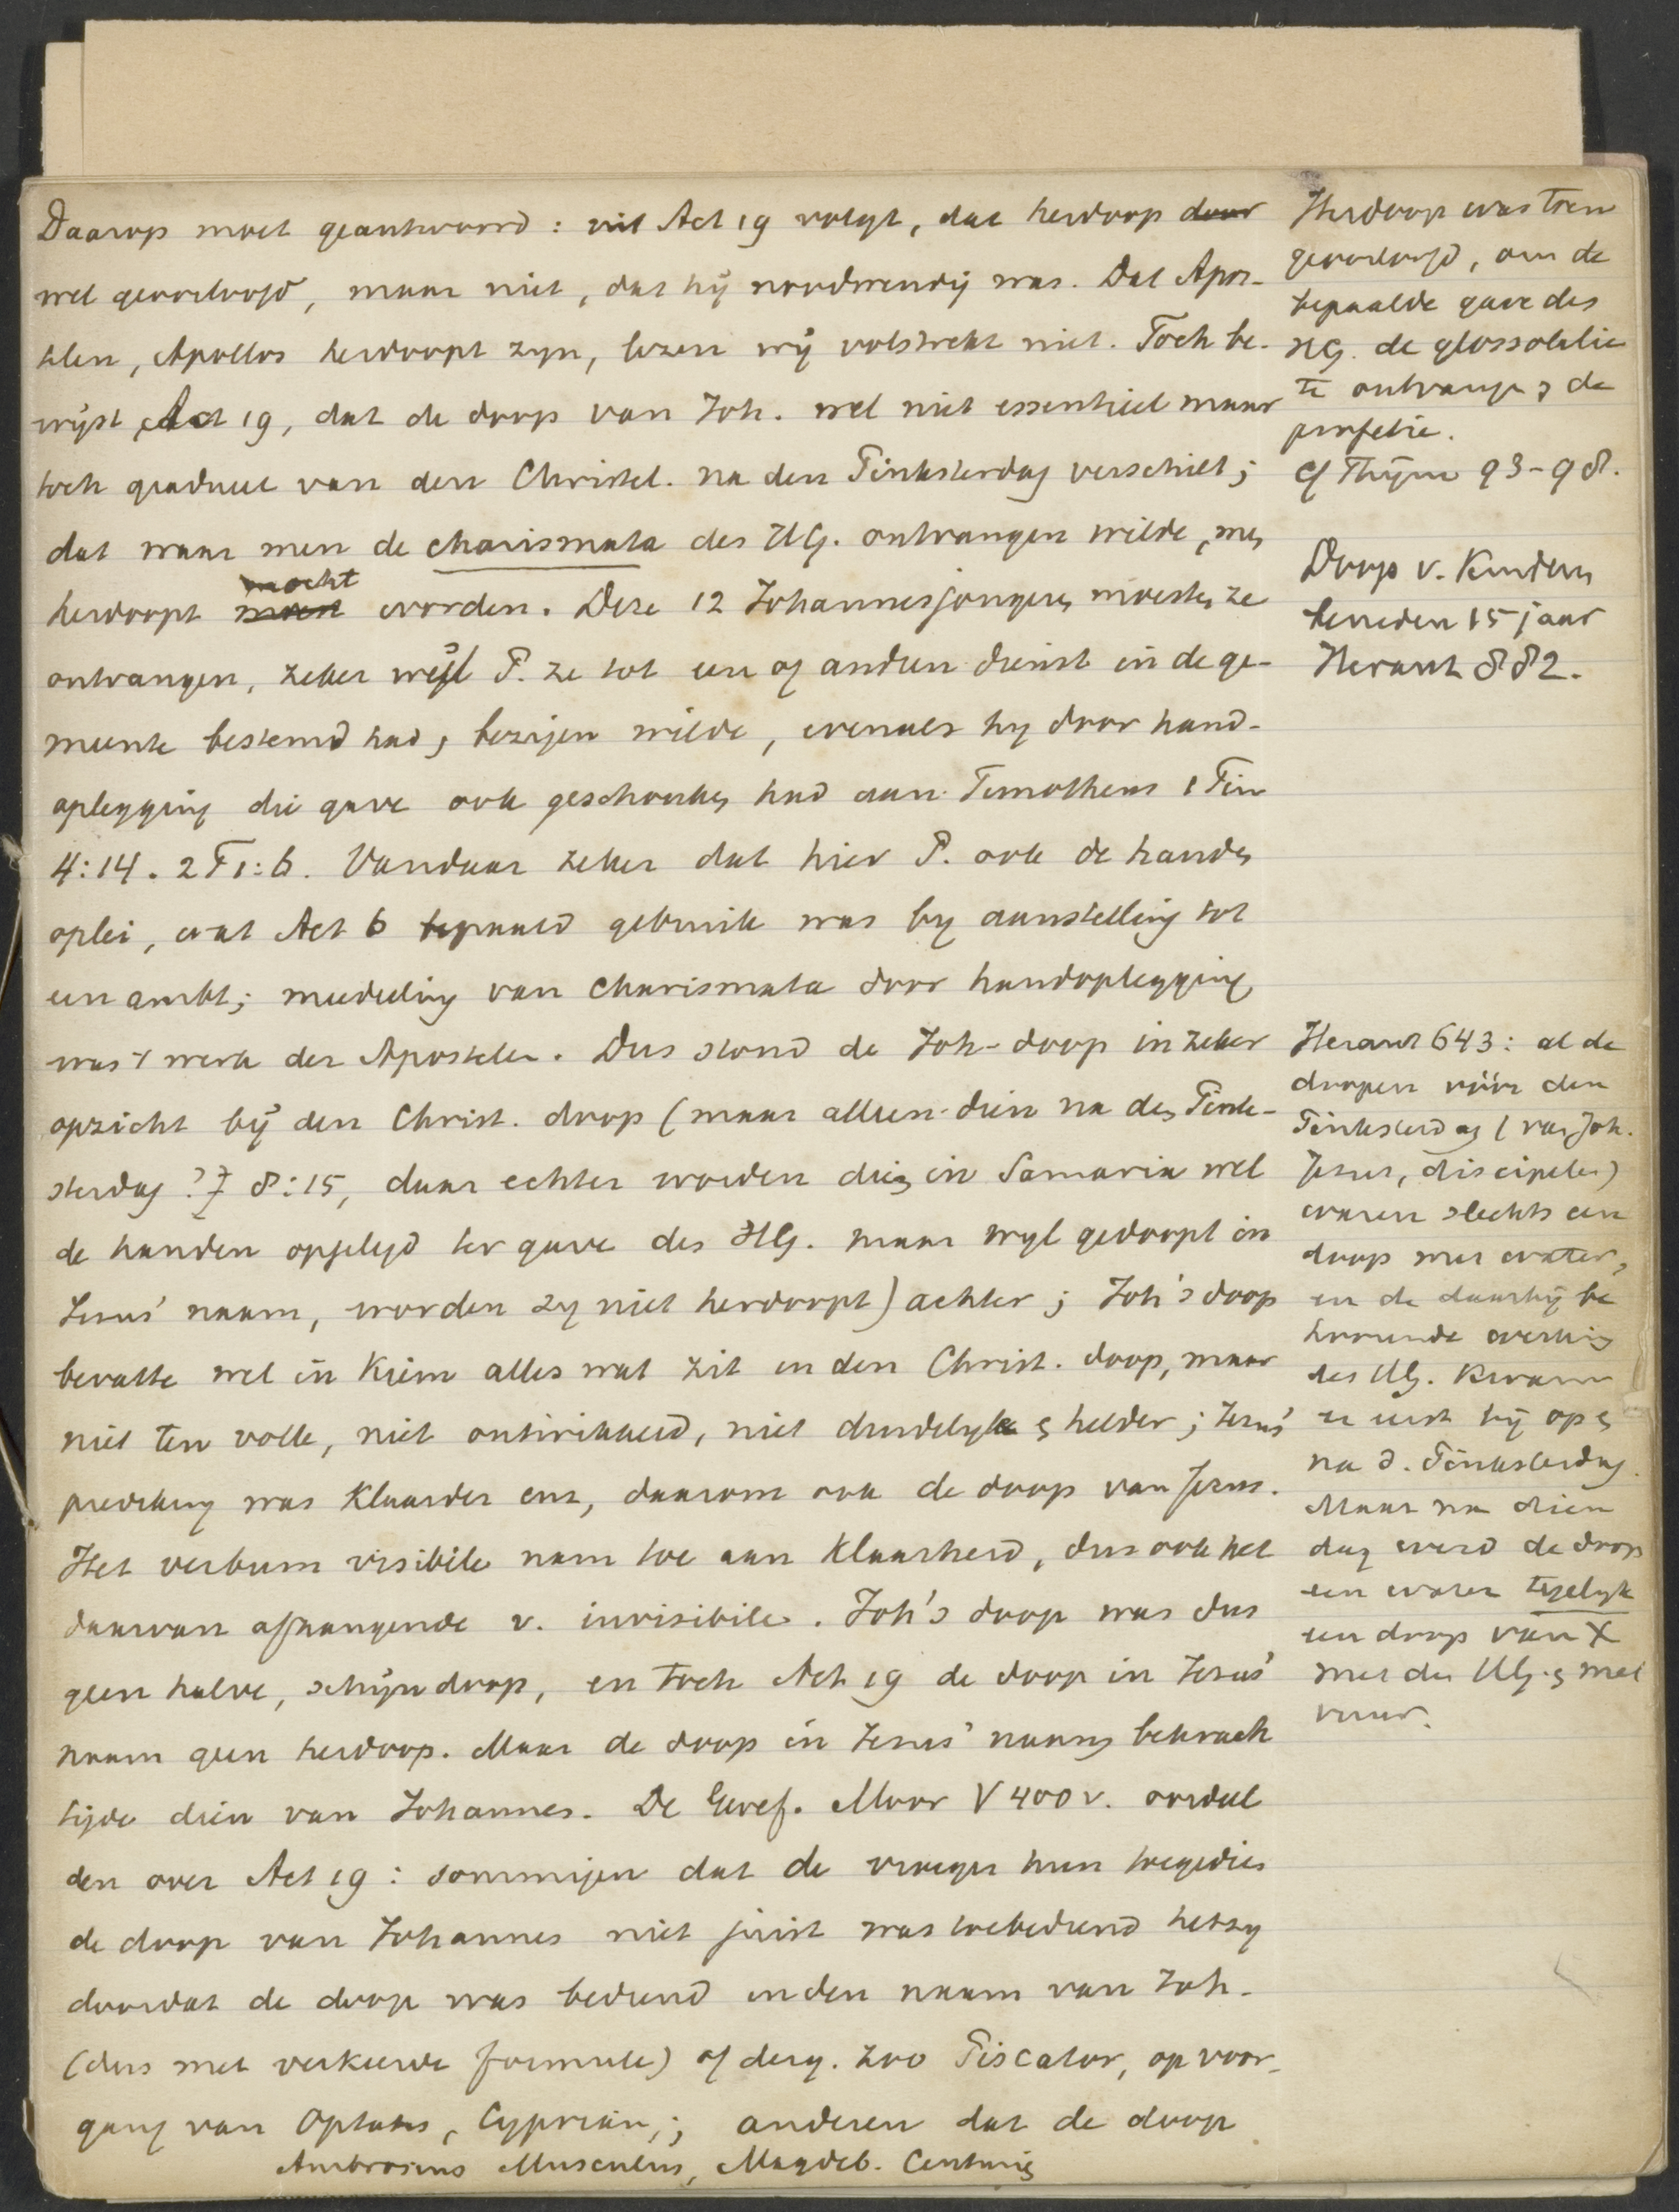 Daarop moet geantwoord: uit Act 19 volgt, dat herdoop daar
wel geoorloofd, maar niet, dat hij noodwendig was. Dat Apos-
telen, Apollos herdoopt zyn, lezen wij volstrekt niet. Toch be-
wijst Act 19, dat de doop van Joh. wel niet essentieel maar
toch gradueel van den Christel. na den Pinksterdag verschilt;
dat waar men de charismata des HG. ontvangen wilde, men
herdoopt mocht worden. Deze 12 Johannesjongeren moesten ze
ontvangen, zeker wijl P. ze tot een of anderen dienst in de ge-
meente bestemd had, bezigen wilde, evenals hy door hand-
oplegging die gave ook geschonken had aan Timotheus 1 Tim
4:14. 2 T 1:6. Vandaar zeker dat hier P. ook de handen
oplei, wat Act 6 bepaald gebruik was by aanstelling tot
een ambt; mededeling van charismata door handoplegging
was 't werk der Apostelen. Dus stond de Joh-doop in zeker
opzicht bij den Christ. doop (maar alleen dien na den Pink-
sterdag? 8:15, daar echter worden die in Samaria wel
de handen opgelegd ter gave des HG. maar wyl gedoopt in
Jezus' naam, worden zy niet herdoopt) achter; Joh's doop
bevatte wel in Kiem alles wat zit in den Christ. doop, maar
niet ten volle, niet ontwikkeld, niet duidelyk en helder; Jezus'
prediking was Klaarder enz, daarom ook de doop van Jezus.
Het verbum visibile nam toe aan Klaarheid, dus ook het
daarvan afhangende v. invisibile. Joh's doop was dus
geen halve, schijndoop, en toch Act 19 de doop in Jezus'
naam geen herdoop. Maar de doop in Jezus' naam bekrach
tigde dien van Johannes. De Geref. Moor V 400 v. oordeel
den over Act 19: sommigen dat de vroeger hun toegedien
de doop van Johannes niet juist was toebediend hetzy
doordat de doop was bediend in den naam van Joh-
(dus met verkeerde formule) of derg. zoo Piscator, op voor-
gang van Optatus, Cyprian,; anderen dat de doop
Ambrosius Musculus, Magdeb. Centurien
Herdoop was toen
geoorloofd, om de
bepaalde gave des
HG. de glossolalie
te ontvangen en de
profetie.
cf Thijm 93-98.
Doop v. Kinderen
beneden 15 jaar
Heraut 882.
Heraut 643: al de
doopen vóór den
Pinksterdag (van Joh.
Jezus, discipelen)
waren slechts een
doop met water,
en de daarbij be
hoorende werking
des HG. Kwam
er eerst bij op en
na d. Pinksterdag.
Maar na dien
dag werd de doop
een water tegelyk
een doop van X
met den HG. en met
vuur.